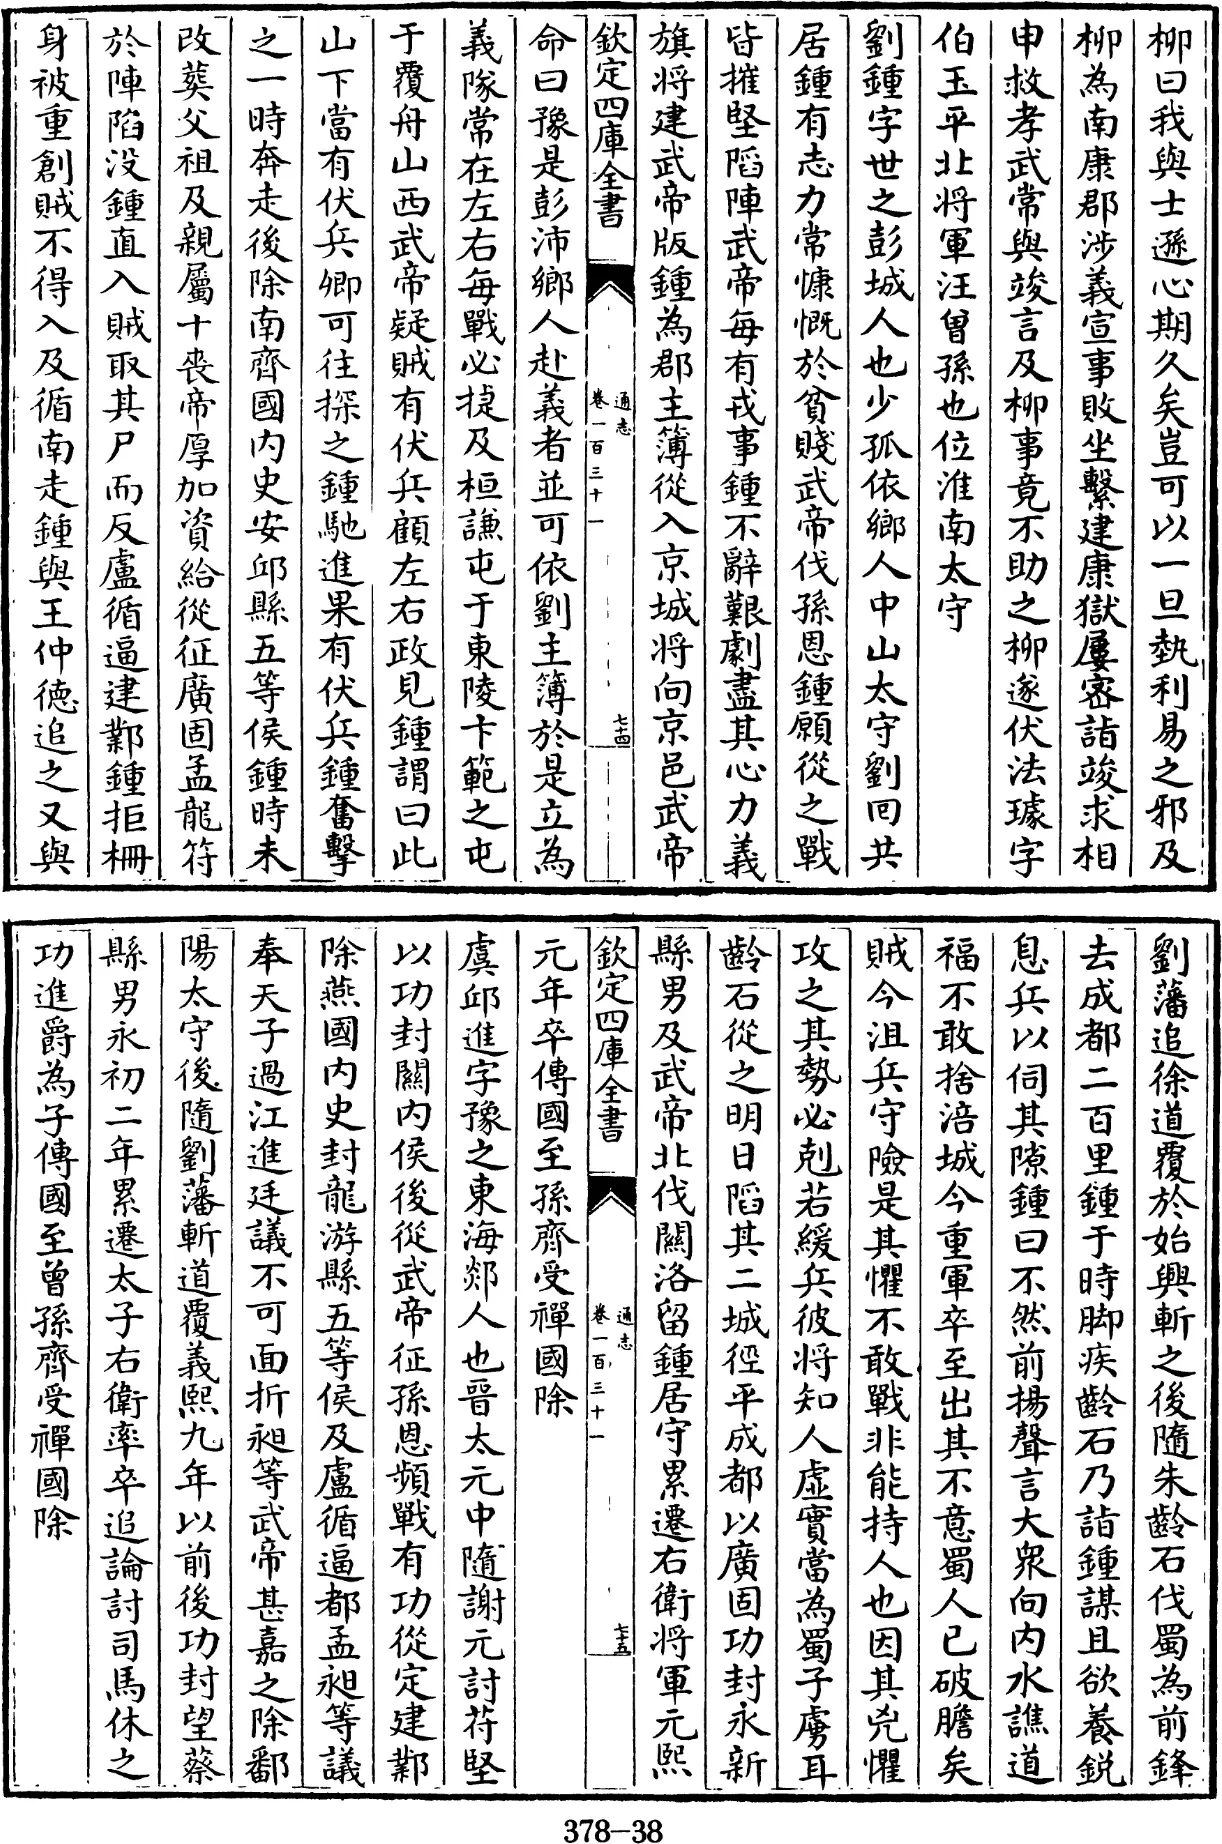 柳曰我與士遜心期久矣豈可以一旦埶利易之邪及
柳為南康郡涉義宣事敗坐繫建康獄屢宻詣竣求相
申救孝武常與竣言及柳事竟不助之柳遂伏法璩字
伯玉平北將軍汪曾孫也位淮南太守
劉鍾字世之彭城人也少孤依鄉人中山太守劉回共
居鍾有志力常慷慨於貧賤武帝伐孫恩鍾願從之戰
皆摧堅陷陣武帝每有戎事鍾不辭艱劇盡其心力義
旗將建武帝版鍾為郡主簿從入京城將向京邑武帝
欽定四庫全書
通志
卷一百三十一
七十四
命曰豫是彭沛鄉人赴義者並可依劉主簿於是立為
義隊常在左右每戰必捷及桓謙屯于東陵卞範之屯
于覆舟山西武帝疑賊有伏兵顧左右政見鍾謂曰此
山下當有伏兵卿可往探之鍾馳進果有伏兵鍾奮擊
之一時奔走後除南齊國内史安邱縣五等侯鍾時未
改葬父祖及親屬十喪帝厚加資給從征廣固孟龍符
於陣陷没鍾直入賊取其尸而反盧循逼建鄴鍾拒柵
身被重創賊不得入及循南走鍾與王仲德追之又與
劉藩追徐道覆於始興斬之後隨朱齡石伐蜀為前鋒
去成都二百里鍾于時脚疾齡石乃詣鍾謀且欲養鋭
息兵以伺其隙鍾曰不然前揚聲言大衆向内水譙道
福不敢捨涪城今重軍卒至出其不意蜀人已破膽矣
賊今沮兵守險是其懼不敢戰非能持人也因其兇懼
攻之其勢必剋若緩兵彼將知人虚實當為蜀子虜耳
齡石從之明日陷其二城徑平成都以廣固功封永新
縣男及武帝北伐關洛留鍾居守累遷右衛將軍元熙
欽定四庫全書
通志
卷一百三十一
七十五
元年卒傳國至孫齊受禪國除
虞邱進字豫之東海郯人也晉太元中隨謝元討苻堅
以功封關内侯後從武帝征孫恩頻戰有功從定建鄴
除燕國内史封龍游縣五等侯及盧循逼都孟昶等議
奉天子過江進廷議不可面折昶等武帝甚嘉之除鄱
陽太守後隨劉藩斬道覆義熙九年以前後功封望蔡
縣男永初二年累遷太子右衛率卒追論討司馬休之
功進爵為子傳國至曾孫齊受禪國除
378-38